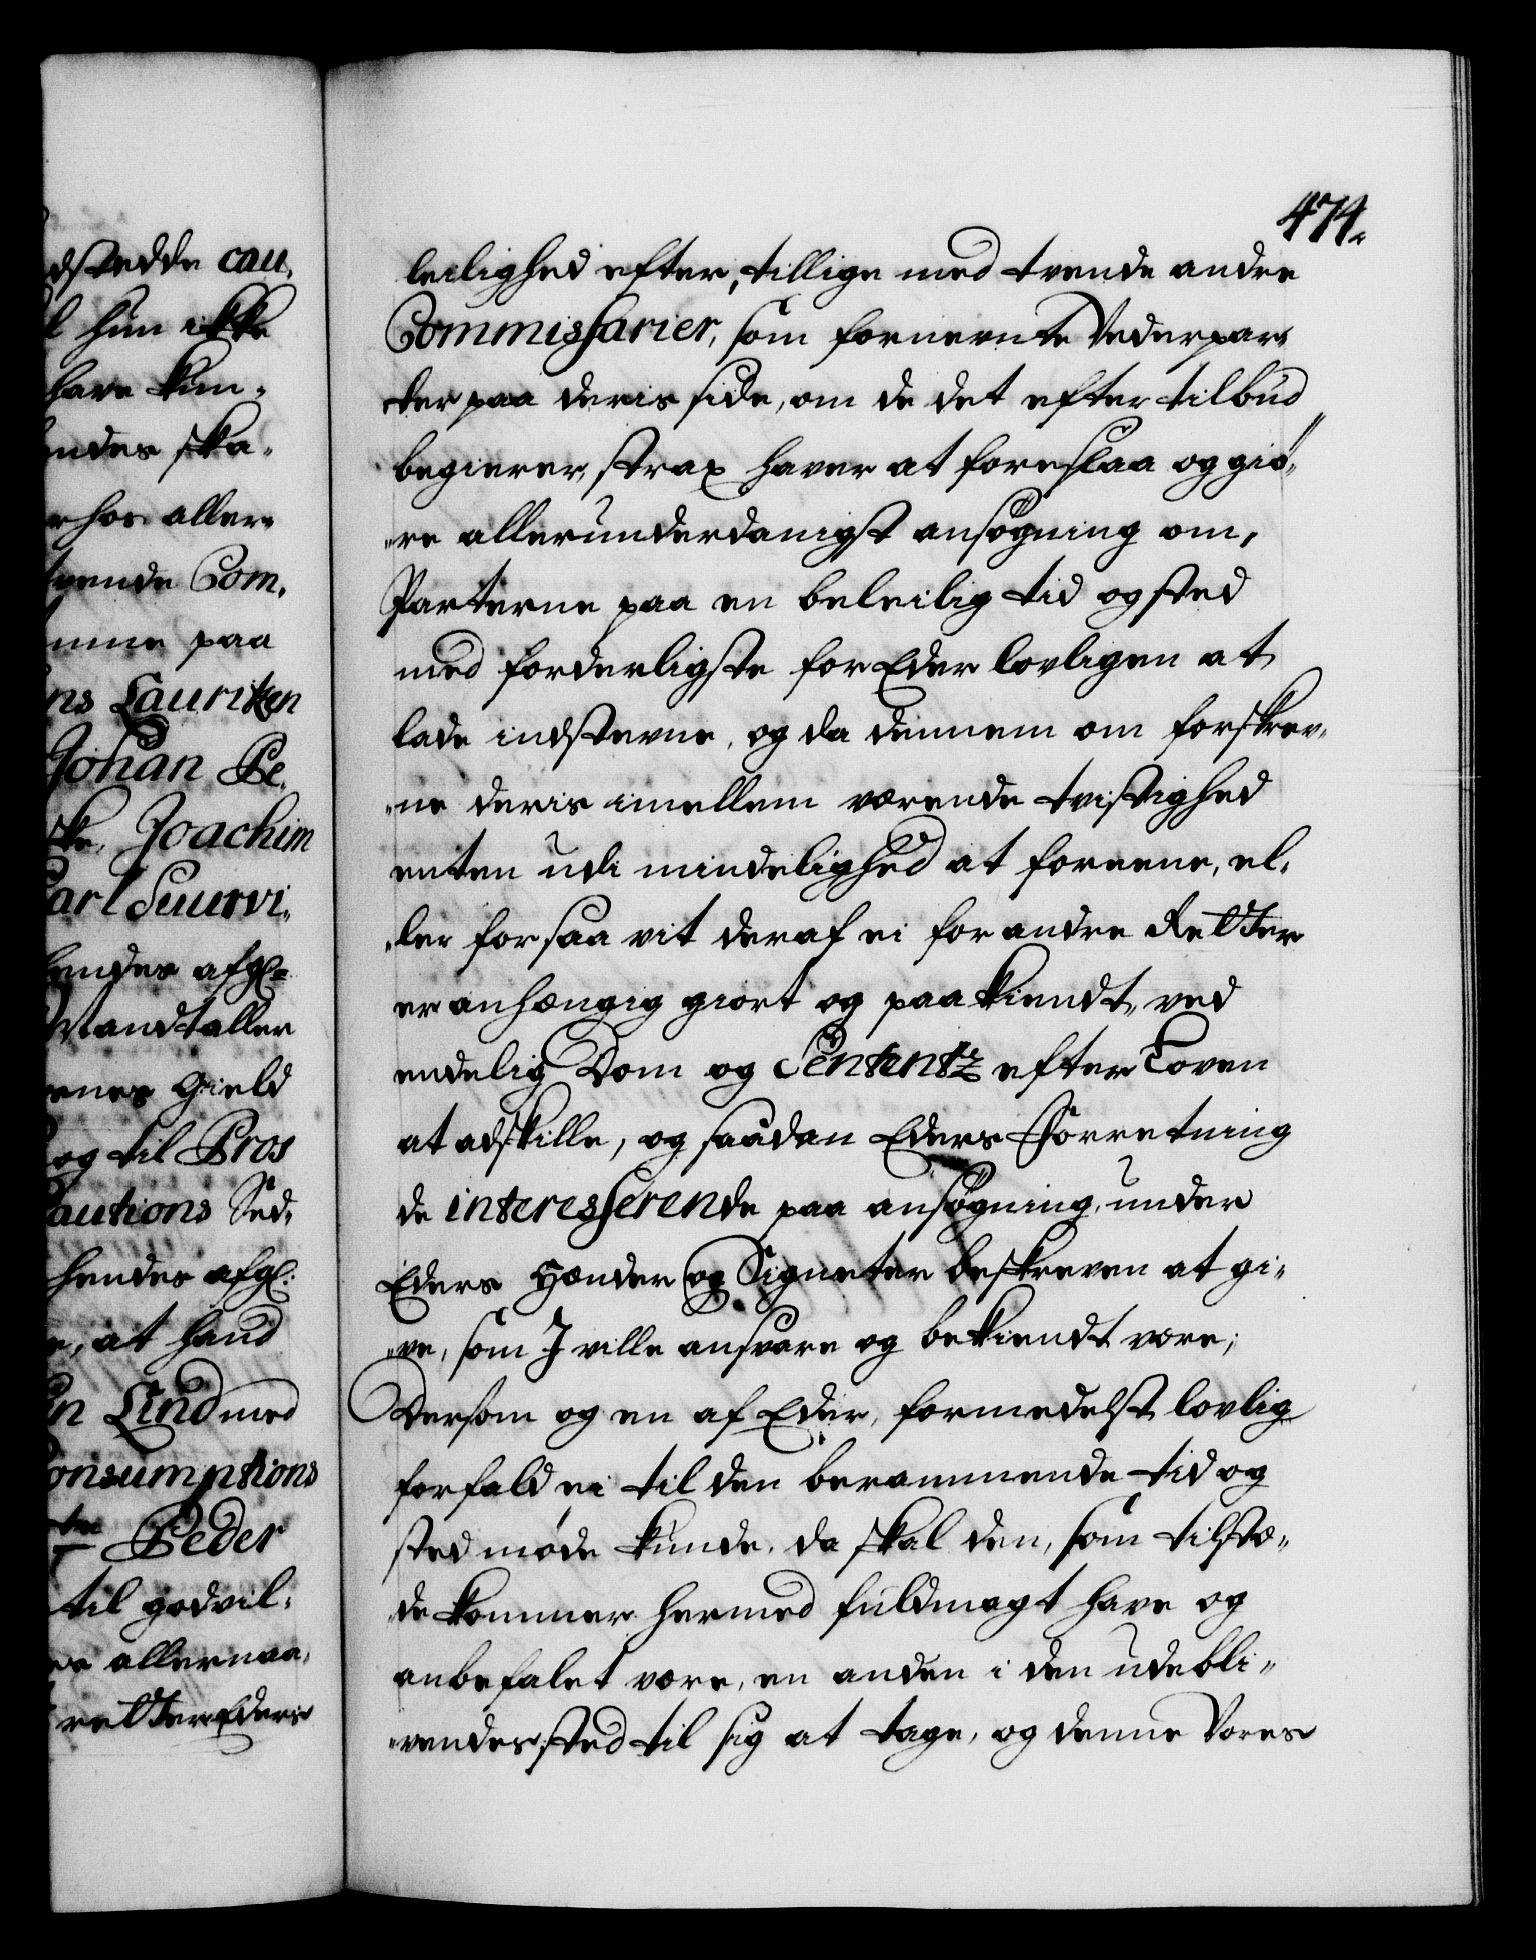 474.
leilighed efter, tillige med tvende andre
Commissarier, som fornevnte Vederpar-
ter paa deris side, om de det efter tilbud
begierer, strax haver at foreslaa og giö-
-re allerunderdanigst ansögning om,
Parterne paa en beleilig tid og sted
med forderligste for Eder lovligen at
lade indstevne, og da dennem om forskrev-
-ne deris imellem værende tvistighed
enten udi mindelighed at foreene, el-
-ler forsaavit deraf ei for andre Retter
er anhængig giort og paakiendt, ved
endelig Dom og Sententz efter Loven
at adskille, og saadan Eders Forretning
de interesserende paa ansögning, under
Eders Hænder og Signeter beskreven at gi-
-ve, som I ville ansvare og bekiendt være;
Dersom og en af Eder, formedelst lovlig
forfald ei til den berammende tid og
sted møde kunde, da skal den, som tilstæ-
-de kommer hermed fuldmagt have og
anbefalet være, en anden i den udebli-
-vendes sted til sig at tage, og denne Vores
dstedde cau-
hun ikke
have kun-
endes ska-
hos aller-
tvende Com-
mme paa
ns Lauritzen
Johan Pe-
ske, Joachim
Carl Suurvi-
hendes afg:
Mandtaller
enes Gield
og til Pros
Cautions Sed-
hendes afg:
e, at haud
en Lind med
Consumptions
Peder
til godvil-
allernaa-
retter Eders